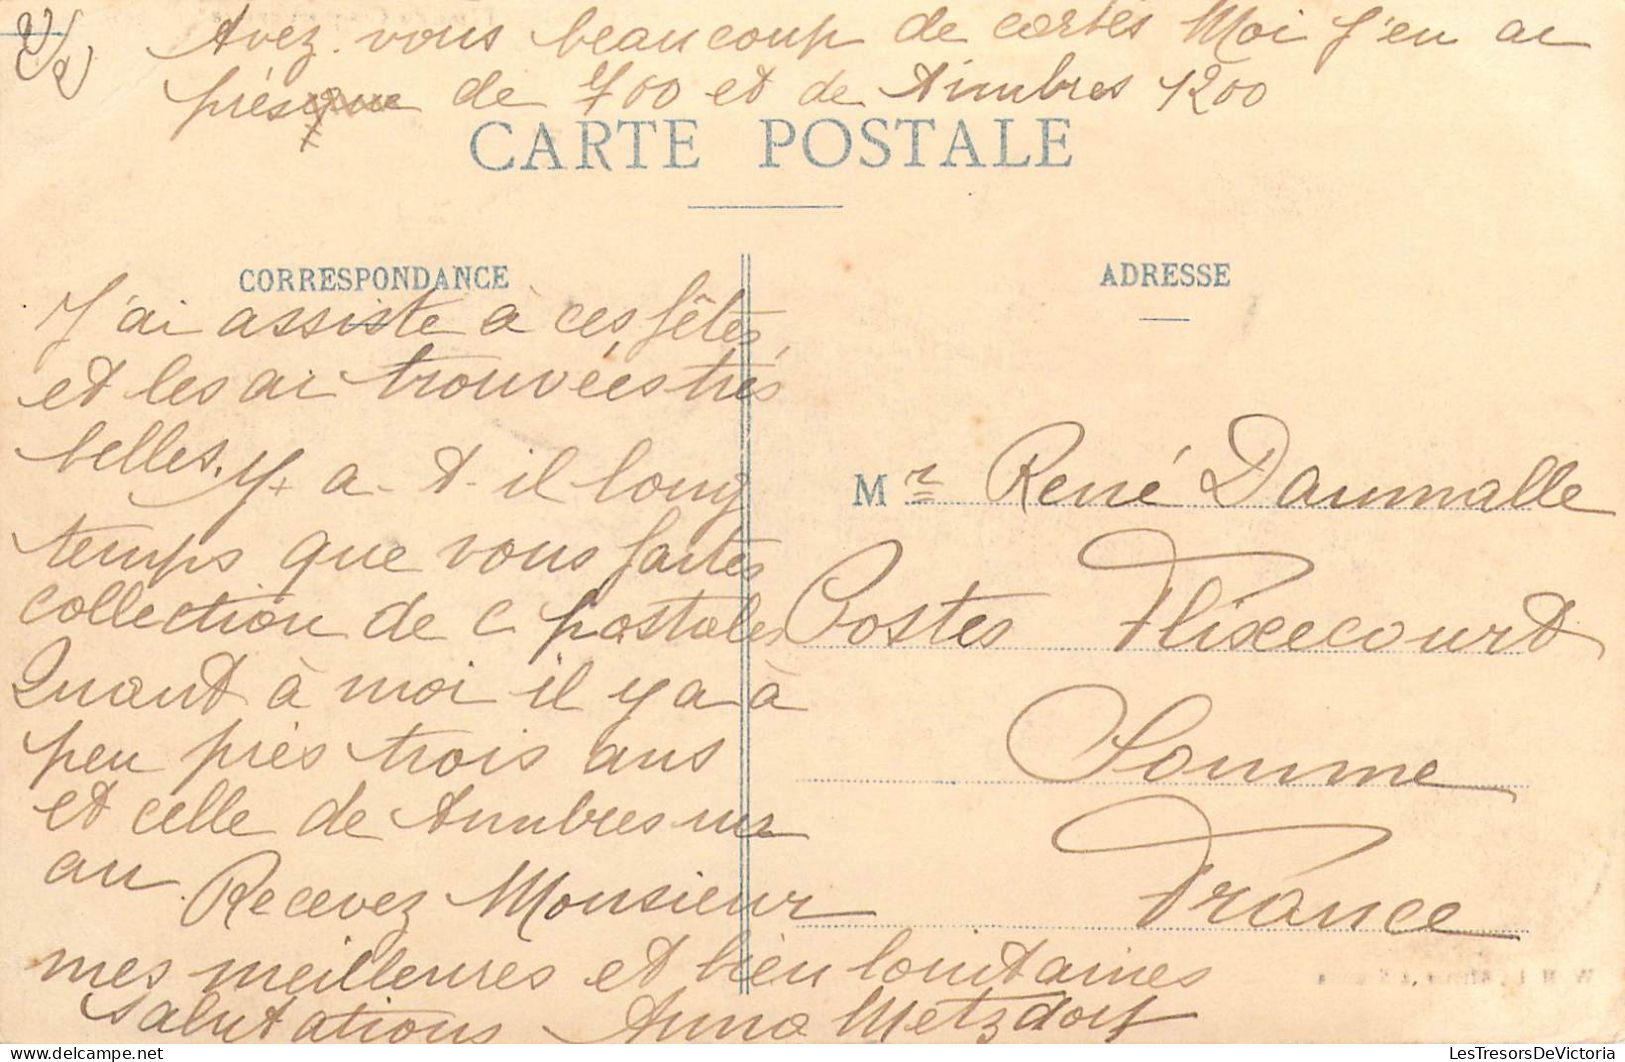 Avez-vous beaucoup de cartes Moi J'en ai
près de 700 et de timbres 1200
CARTE POSTALE
CORRESPONDANCE
J'ai assisté à ces fêtes,
et les ai trouvées très
belles. Y a-t-il long
temps que vous faites
collection de c postales
Quant à moi il y a à
peu près trois ans
et celle de timbres un
an. Recevez Monsieur
mes meilleures et bien lointaines
salutations Anna Metzdorf
ADRESSE
Mr René Daumalle
Postes Flixecourt
Somme
France
LesTresorsDeVictoria.com